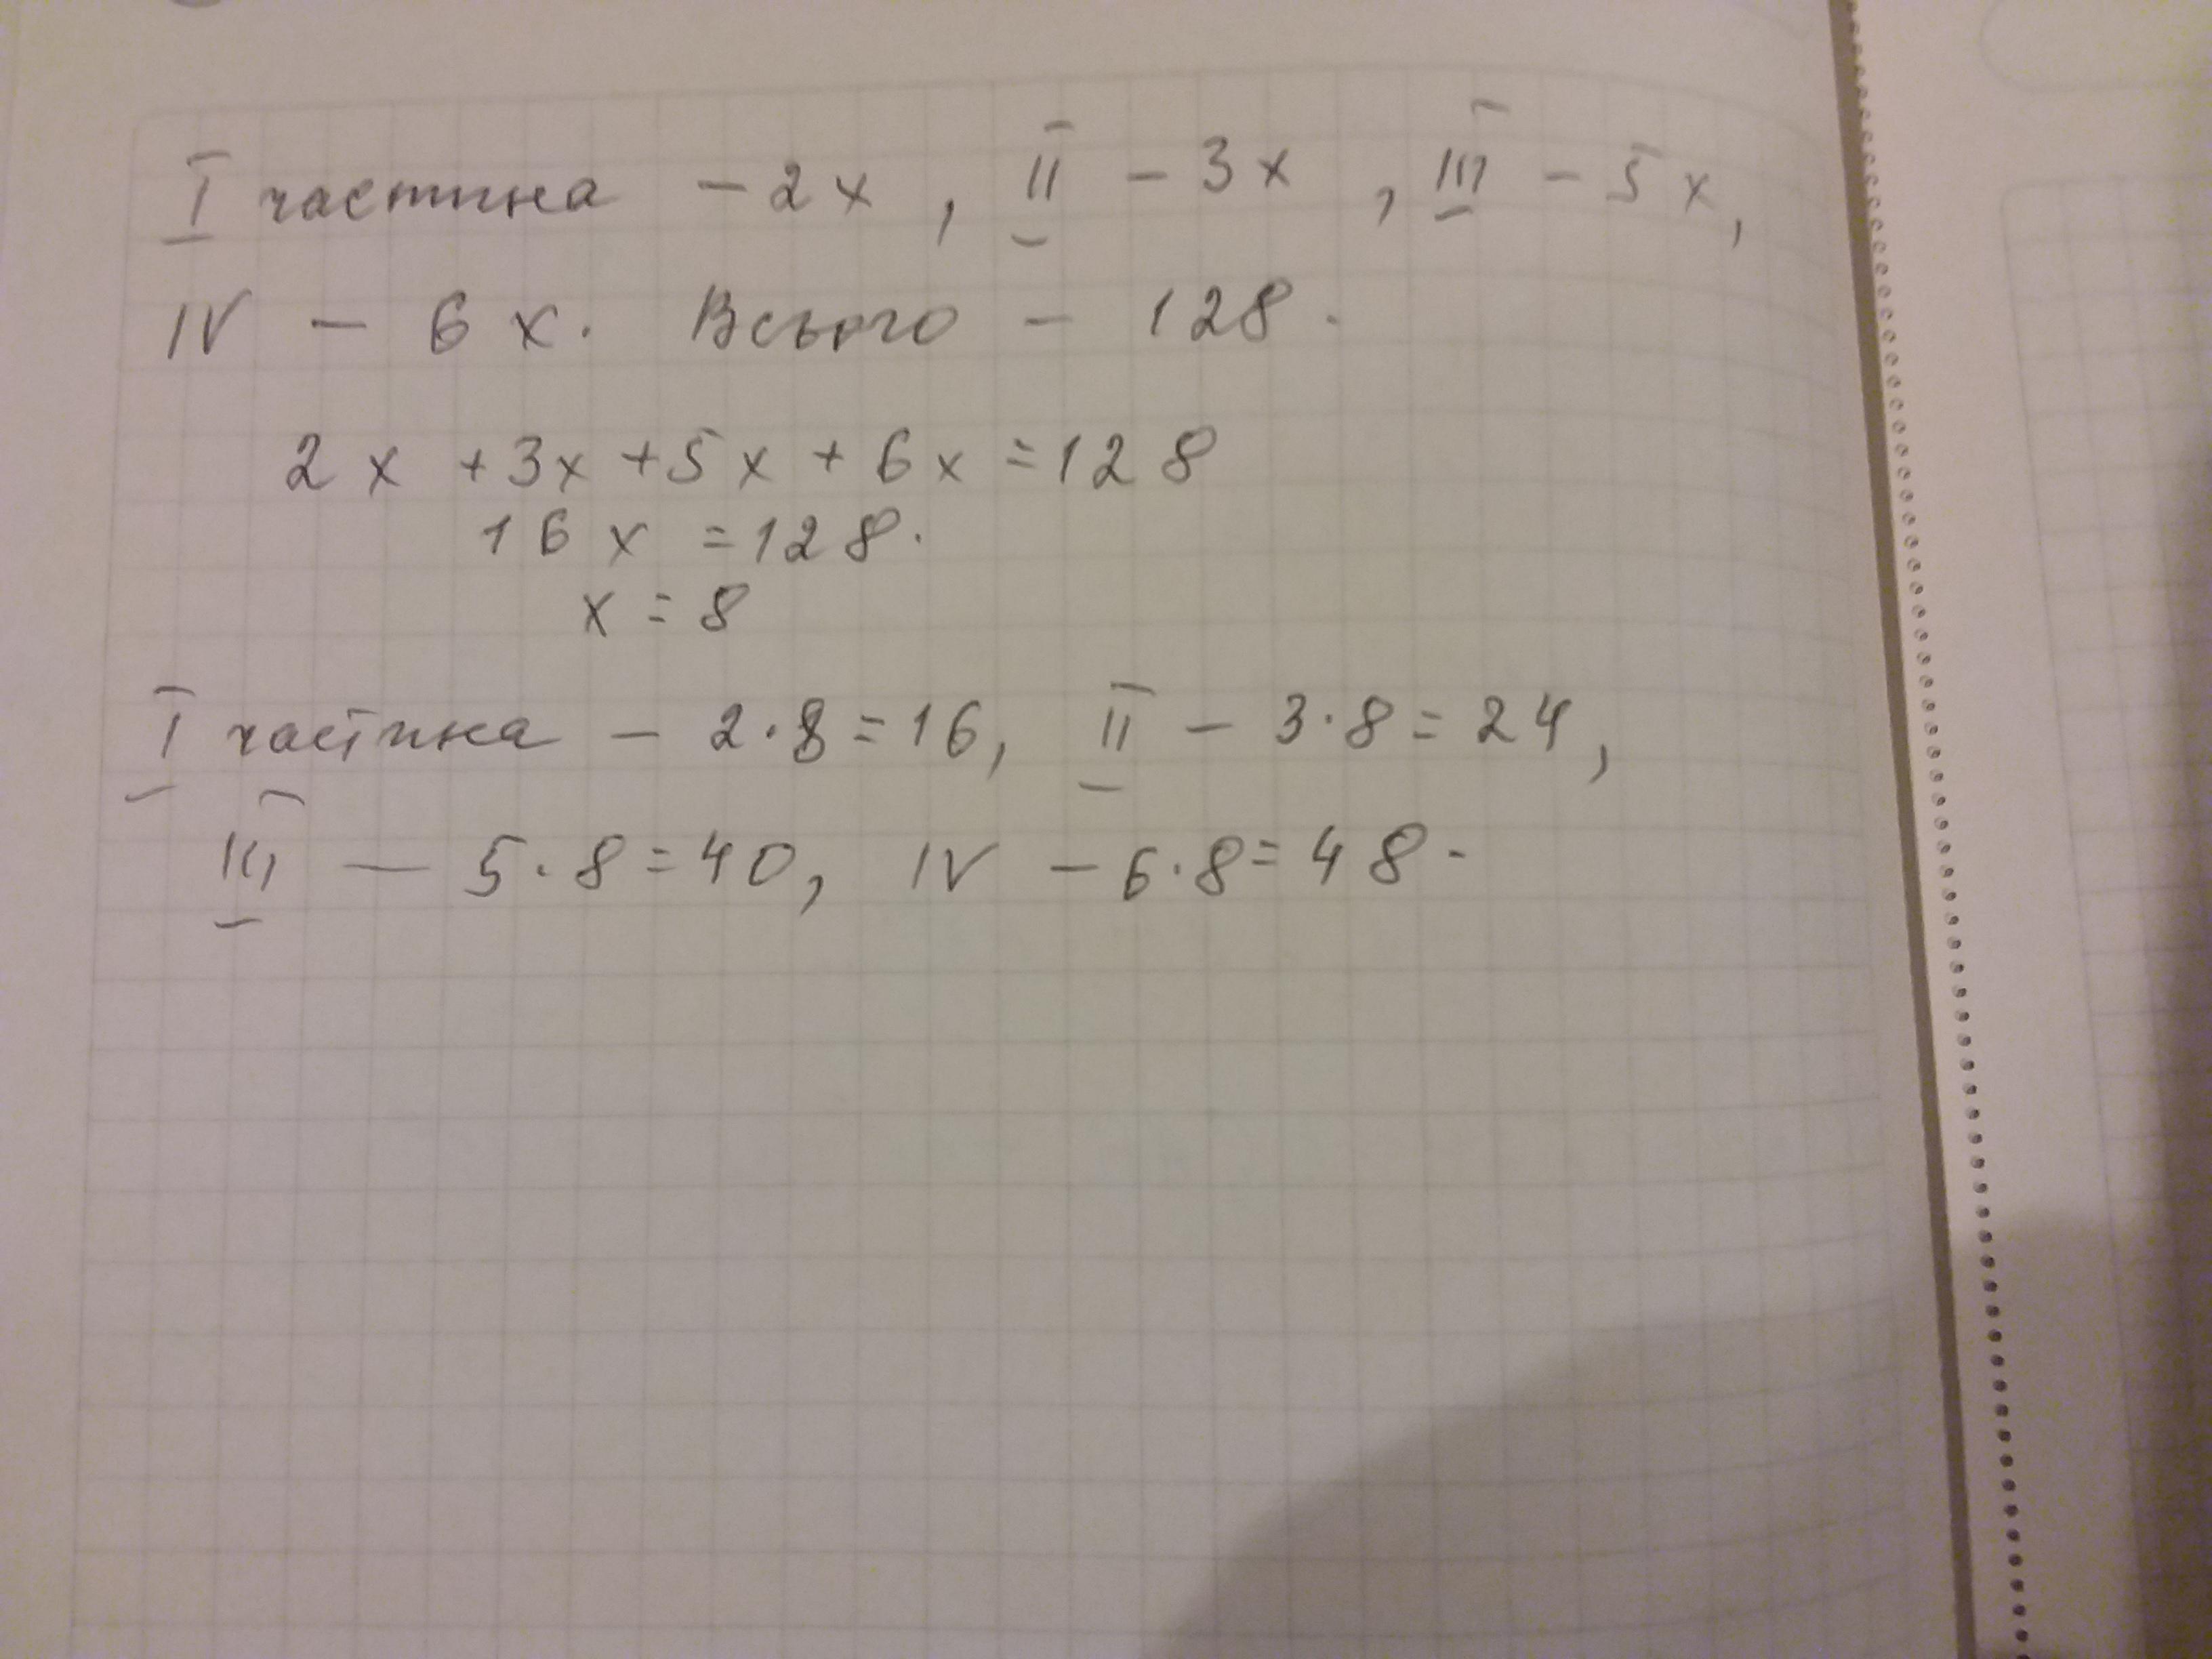 I частина - 2x, II - 3x, III - 5x,
IV - 6x. Всього - 128.
2x + 3x + 5x + 6x = 128
16x = 128.
x = 8
I частина - 2·8 = 16, II - 3·8 = 24,
III - 5·8 = 40, IV - 6·8 = 48.